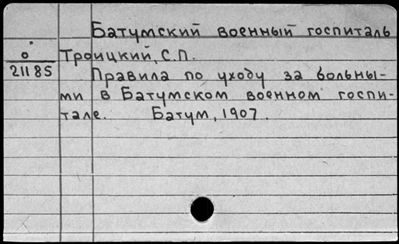 Батумский военный госпиталь
о
Троицкий, С.П.
21185
Правила по уходу за больны-
ми в Батумском военном госпи-
тале. Батум, 1907.